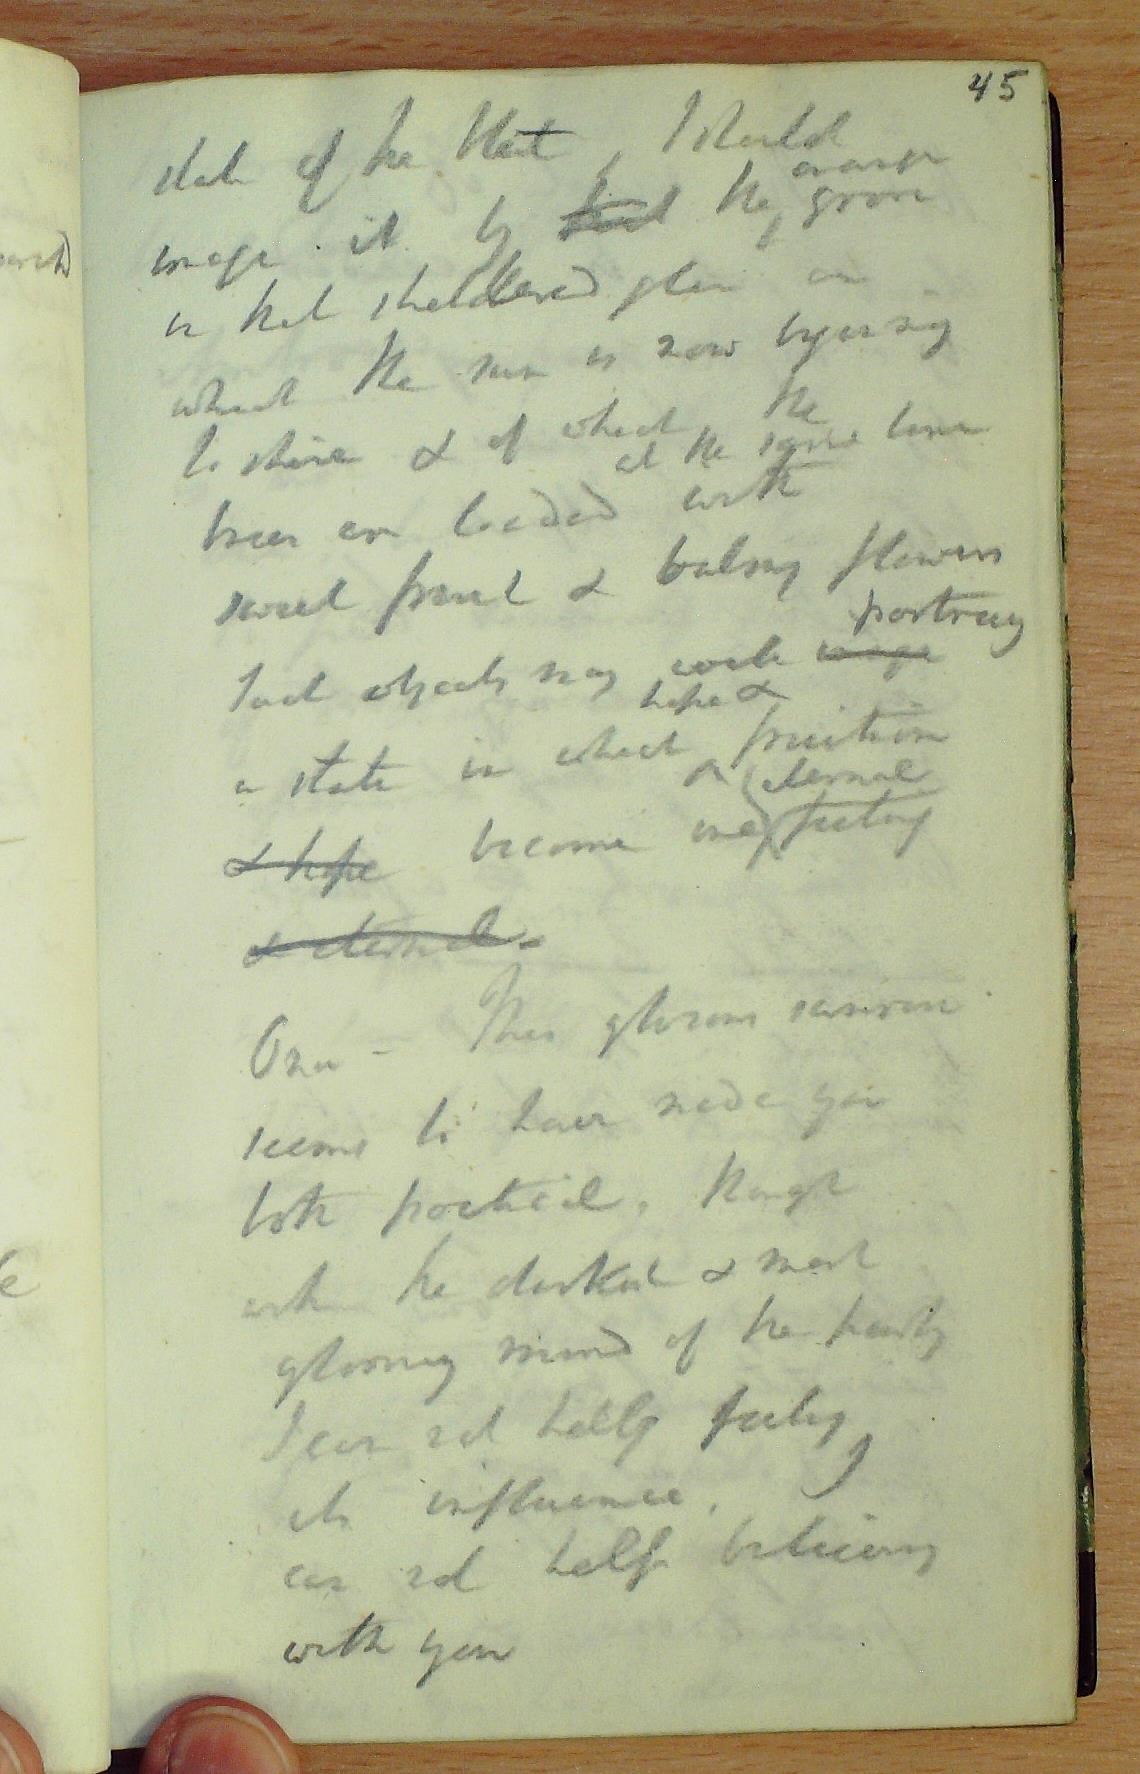 45
state of the that, I should
image it by the orange grove
in that sheltered glen on
which the sun is now beginning
to shine & of which the
trees are at the same time
loaded with
sweet fruit & balmy flowers
Such objects may well image portray
a state in which hope & fruition
& hope become one eternal feeling
& eternal.
Onu - This glorious sunrise
seems to have made you
both poetical. though
with the darkest & most
gloomy mind of the party
I can not help feeling
its influence. I
can not help believing
with you